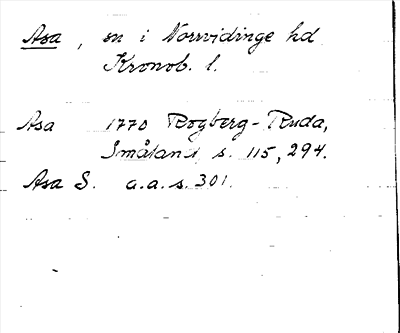 Asa, sn i Norrvidinge hd
Kronob. l.
Asa 1770 Rogberg-Ruda,
Småland s. 115, 294.
Asa S. a.a.s. 301.